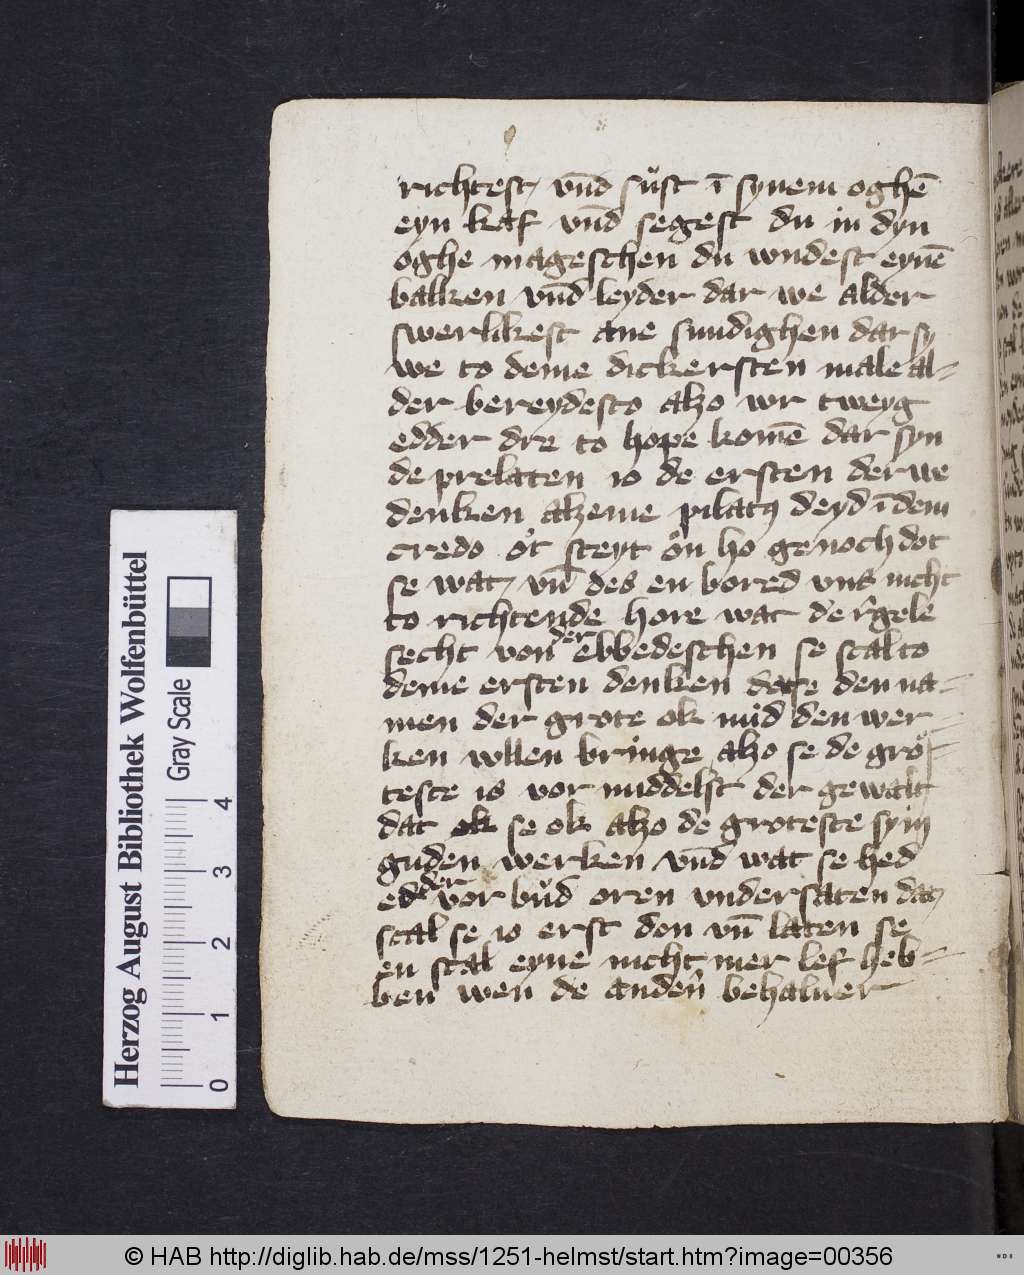 richtest vn̄d su̇st ī synem oghē
eyn kaf vn̄d segest du in dyn
oghe mageschen du vvndest eynē
balken vn̄d leyder dar we alder
swerlikest ane sundighen dar sy
we to deme dickersten male al=
der bereydesto alzo wr tweyg
edder dre to hope komē dar syn
de prelaten io de ersten der we
denken alzeme pilatꝰ deyd ī dem
credo steyt on ho genoch dot
se wat vn̄ des en bored vns nicht
to richtende hore wat de regele
secht von der ebbedeschen se scal to
deme ersten denken den na=
men der grote ok mid den wer=
ken wllen bringe alzo se de grö=
teste is vor middelst der gewalt
dat ok se ok alzo de groteste sy in
guden werken vn̄d wat se hed
edder vor bu̇d oren vndersaten dat
scal se io erst don vn̄ laten se
en scal eyne nicht mer lef heb=
ben wen de anderen behaluer
Herzog August Bibliothek Wolfenbüttel
Gray Scale
0 1 2 3 4
© HAB http://diglib.hab.de/mss/1251-helmst/start.htm?image=00356